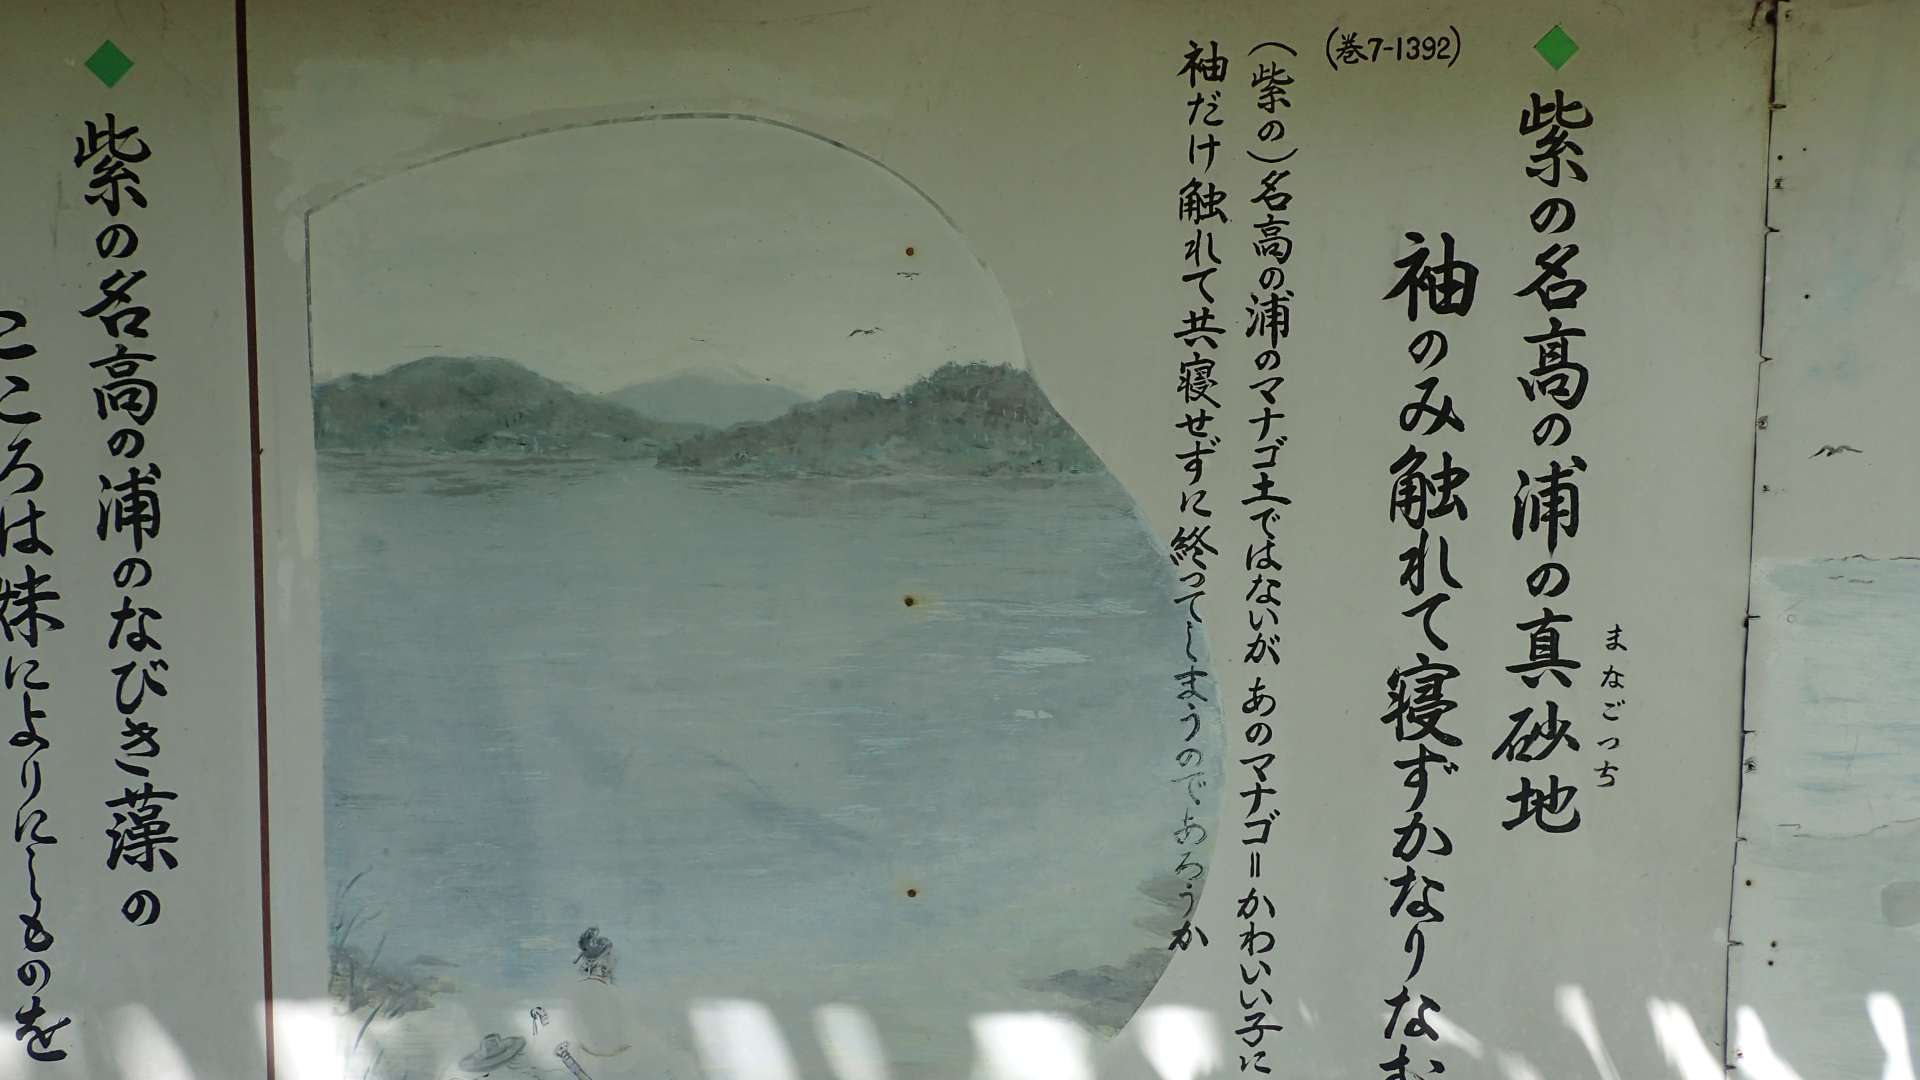 紫の名高の浦の真砂地
まなごつち
袖のみ触れて寝ずかなりなむ
(巻7-1392)
(紫の)名高の浦のマナゴ土ではないが あのマナゴ=かわいい子に
袖だけ触れて共寝せずに終ってしまうのであろうか
紫の名高の浦のなびき藻の
こころは妹によりにしものを